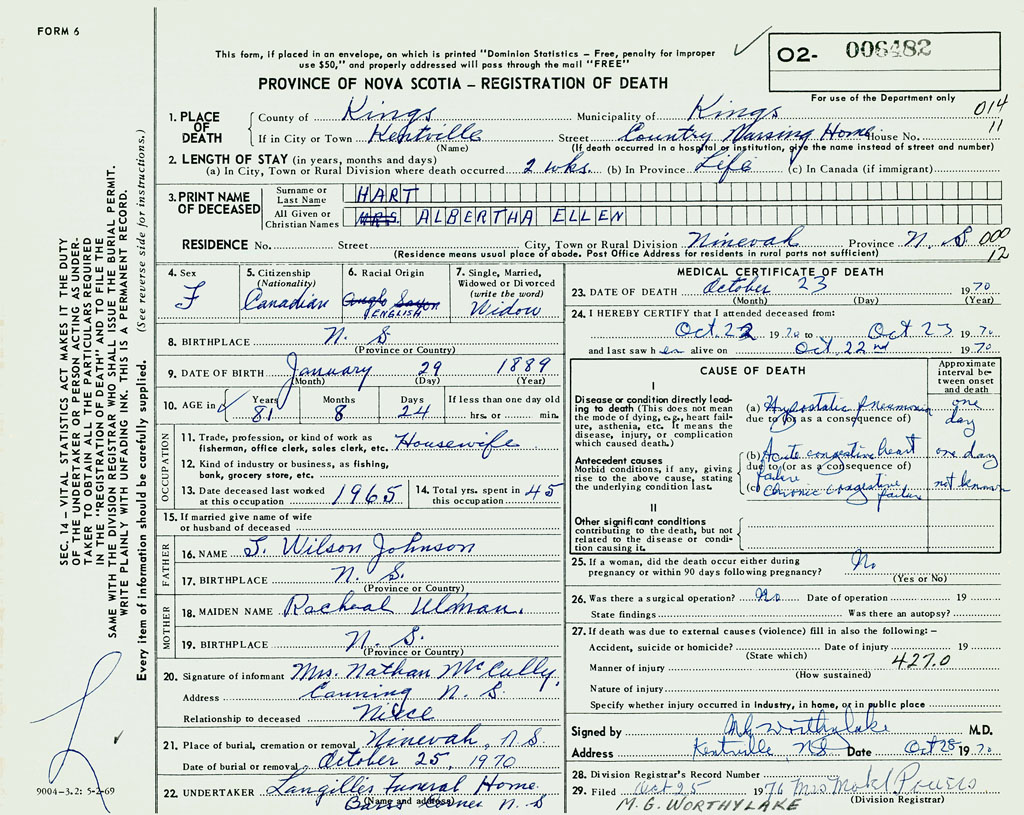 FORM 6
This form, if placed in an envelope, on which is printed "Dominion Statistics – Free, penalty for improper
use $50," and properly addressed will pass through the mail "FREE"
O2- 006482
For use of the Department only
PROVINCE OF NOVA SCOTIA – REGISTRATION OF DEATH
1. PLACE OF DEATH
County of Kings Municipality of Kings 014
If in City or Town Kentville Street Country Nursing Home House No. 11
(Name) (If death occurred in a hospital or institution, give the name instead of street and number)
2. LENGTH OF STAY (in years, months and days)
(a) In City, Town or Rural Division where death occurred 2 wks. (b) In Province Life (c) In Canada (if immigrant)
3. PRINT NAME OF DECEASED
Surname or Last Name HART
All Given or Christian Names MRS. ALBERTHA ELLEN
RESIDENCE No. Street City, Town or Rural Division Ninevah Province N. S. 000
(Residence means usual place of abode. Post Office Address for residents in rural parts not sufficient) 12
4. Sex F
5. Citizenship (Nationality) Canadian
6. Racial Origin Anglo Saxon ENGLISH
7. Single, Married, Widowed or Divorced (write the word) Widow
8. BIRTHPLACE N. S.
(Province or Country)
9. DATE OF BIRTH January 29 1889
(Month) (Day) (Year)
10. AGE in Years 81 Months 8 Days 24 If less than one day old hrs. or min.
OCCUPATION
11. Trade, profession, or kind of work as
fisherman, office clerk, sales clerk, etc. Housewife
12. Kind of industry or business, as fishing,
bank, grocery store, etc.
13. Date deceased last worked at this occupation 1965
14. Total yrs. spent in this occupation 45
15. If married give name of wife
or husband of deceased
FATHER
16. NAME J. Wilson Johnson
17. BIRTHPLACE N. S.
(Province or Country)
MOTHER
18. MAIDEN NAME Racheal Ulman.
19. BIRTHPLACE N. S.
(Province or Country)
20. Signature of informant Mrs. Nathan McCully.
Address Canning N. S.
Relationship to deceased Niece
21. Place of burial, cremation or removal Ninevah, N S
Date of burial or removal October 25, 1970
22. UNDERTAKER Langilles Funeral Home
(Name and address) N. S
MEDICAL CERTIFICATE OF DEATH
23. DATE OF DEATH October 23 1970
(Month) (Day) (Year)
24. I HEREBY CERTIFY that I attended deceased from:
Oct. 22 1970 to Oct 23 1970
and last saw her alive on Oct. 22nd 1970
CAUSE OF DEATH
Approximate interval between onset and death
I
Disease or condition directly leading to death (This does not mean the mode of dying, e.g., heart failure, asthenia, etc. It means the disease, injury, or complication which caused death.)
(a) Hypostatic Pneumonia one day
due to (or as a consequence of)
Antecedent causes
Morbid conditions, if any, giving rise to the above cause, stating the underlying condition last.
(b) Acute congestive heart failure one day
due to (or as a consequence of)
(c) Chronic congestive failure not known
II
Other significant conditions
contributing to the death, but not related to the disease or condition causing it.
25. If a woman, did the death occur either during
pregnancy or within 90 days following pregnancy? No
(Yes or No)
26. Was there a surgical operation? No Date of operation 19
State findings Was there an autopsy?
27. If death was due to external causes (violence) fill in also the following: –
Accident, suicide or homicide? Date of injury 19
(State which) 427.0
Manner of injury
(How sustained)
Nature of injury
Specify whether injury occurred in industry, in home, or in public place
Signed by MG Worthylake M.D.
Address Kentville NS Date Oct 28 1970
28. Division Registrar's Record Number
29. Filed Oct 25 1970 Mrs Powers
(Division Registrar)
M. G. WORTHYLAKE
SEC. 14 – VITAL STATISTICS ACT MAKES IT THE DUTY
OF THE UNDERTAKER OR PERSON ACTING AS UNDER-
TAKER TO OBTAIN ALL THE PARTICULARS REQUIRED
IN THE "REGISTRATION OF DEATH" AND TO FILE THE
SAME WITH THE DIVISION REGISTRAR WHO SHALL ISSUE THE BURIAL PERMIT.
WRITE PLAINLY WITH UNFADING INK. THIS IS A PERMANENT RECORD.
Every item of information should be carefully supplied. (See reverse side for instructions.)
9004–3.2: 5-2-69